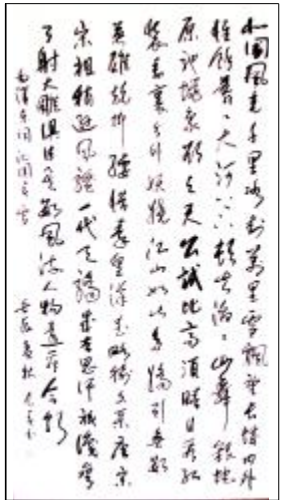 北国风光千里冰封万里雪飘望长城内外
惟余莽莽大河上下顿失滔滔山舞银蛇
原驰蜡象欲与天公试比高须晴日看红
装素裹分外妖娆江山如此多娇引无数
英雄竞折腰惜秦皇汉武略输文采唐宗
宋祖稍逊风骚一代天骄成吉思汗祇识弯
弓射大雕俱往矣数风流人物还看今朝
毛泽东词沁园春雪 壬辰